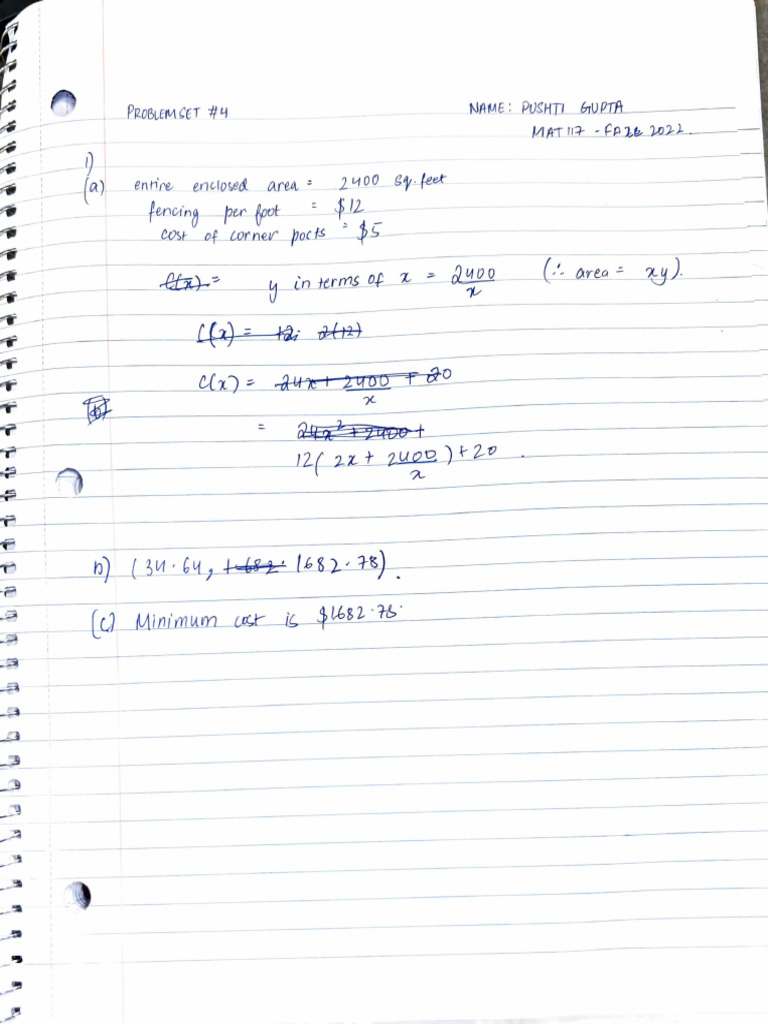 PROBLEM SET #4 NAME: PUSHTI GUPTA
MAT 117 - FA 2022
1)
(a) entire enclosed area = 2400 sq.feet
fencing per foot = $12
cost of corner pocts = $5
C(x) = y in terms of x = 2400/x (∴ area = xy).
C(x) = 12; 2(12)
C(x) = 24x + 2400/x + 20
(b)
= 24x² + 2400 +
12(2x + 2400/x) + 20.
b) (34.64, 1682.78).
(c) Minimum cost is $1682.78.